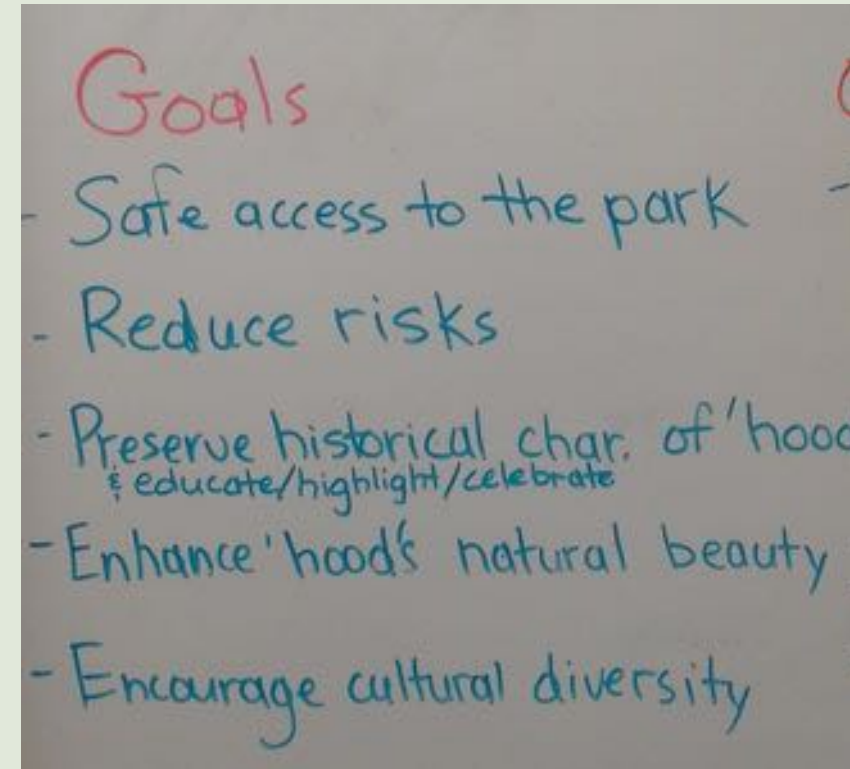 Goals
- Safe access to the park
- Reduce risks
- Preserve historical char. of 'hood
& educate/highlight/celebrate
- Enhance 'hood's natural beauty
- Encourage cultural diversity